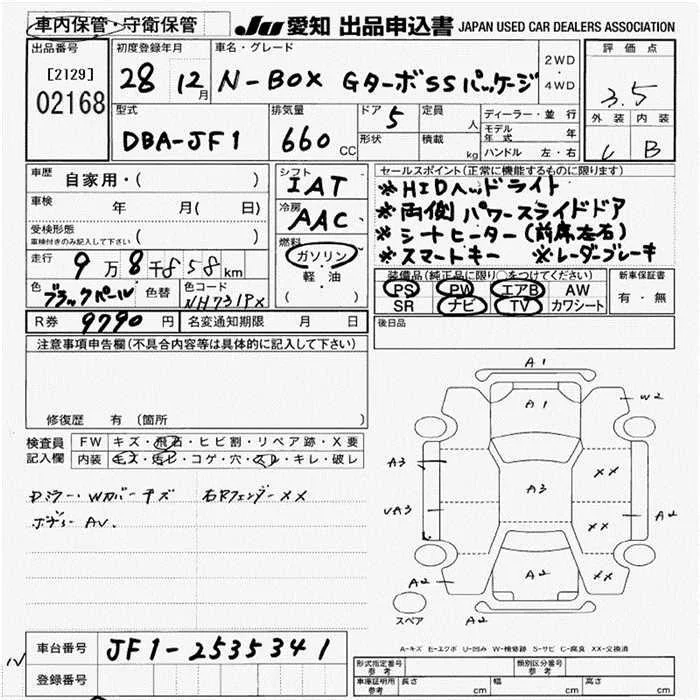 車内保管・守衛保管
JU 愛知 出品申込書 JAPAN USED CAR DEALERS ASSOCIATION
出品番号 初度登録年月 車名・グレード 評価点
[2129]
02168
28 12月 N-BOX GターボSSパッケージ 2WD・4WD 3.5
型式 排気量 ドア 定員 ディーラー・並行 外装 内装
DBA-JF1 660 CC 5 人 モデル年式 年 B
形状 積載 kg ハンドル 左・右
車歴 自家用・( )
シフト IAT
セールスポイント(正常に機能するものに限ります)
※HIDヘッドライト
※両側パワースライドドア
※シートヒーター(前席左右)
※スマートキー ※レーダーブレーキ
車検 年 月( 日)
冷房 AAC
受検形態 車検付きのみ記入して下さい ( )
燃料 ガソリン・軽・油 ( )
走行 9万8千858km
装備品(純正品に限り〇をつけてください) 新車保証書
PS PW エアB AW 有・無
SR ナビ TV カワシート
色 ブラックパール 色替 色コード NH731PX
R券 9790円 名変通知期限 月 日
後日品
注意事項申告欄(不具合内容等は具体的に記入して下さい)
修復歴 有(箇所 )
検査員記入欄 FW キズ・飛石・ヒビ割・リペア跡・X要
内装 キズ・汚レ・コゲ・穴・スレ・キレ・破レ
Dミラー・Wカバーキズ 右RフェンダーXX
ボディー AV.
A1
A1
W2
A3
A3
XX
UA3
XX
A2
A2
A2
XX
A2
スペア
A-キズ E-エクボ U-凹み W-補修跡 S-サビ C-腐食 XX-交換済
車台番号 JF1-2535341
登録番号
形式指定番号 参考 類別区分番号 参考
車庫証明用 参考 長さ cm 幅 cm 高さ cm